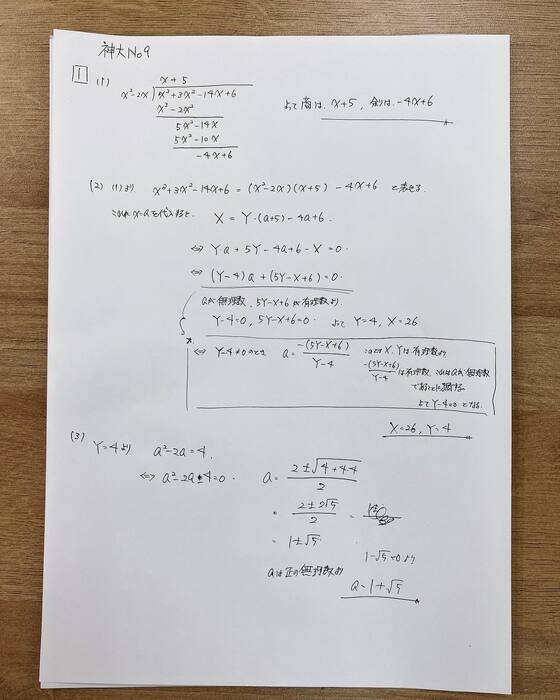 神大No9
1 (1)
x+5
x²-2x ) x³+3x²-14x+6
x³-2x²
5x²-14x
5x²-10x
-4x+6
よって 商は、x+5, 余りは、-4x+6
(2) (1)より x³+3x²-14x+6 = (x²-2x)(x+5) -4x+6 と表せる.
これに x=aを代入すると、 X = Y・(a+5)-4a+6.
⇔ Ya+5Y-4a+6-X=0.
⇔ (Y-4)a+(5Y-X+6)=0.
aが無理数、5Y-X+6が有理数より.
Y-4=0, 5Y-X+6=0. よって Y=4, X=26
* ⇔ Y-4≠0のとき a = -(5Y-X+6)/(Y-4) X, Yは有理数より
-(5Y-X+6)/(Y-4) は有理数. これはaが無理数
であることに矛盾する.
よってY-4=0 となる.
X=26, Y=4
(3) Y=4より a²-2a=4.
⇔ a²-2a-4=0. a = (2±√(4+4・4))/2
= (2±2√5)/2 =
= 1±√5
1-√5<0より
aは正の無理数より
a=1+√5